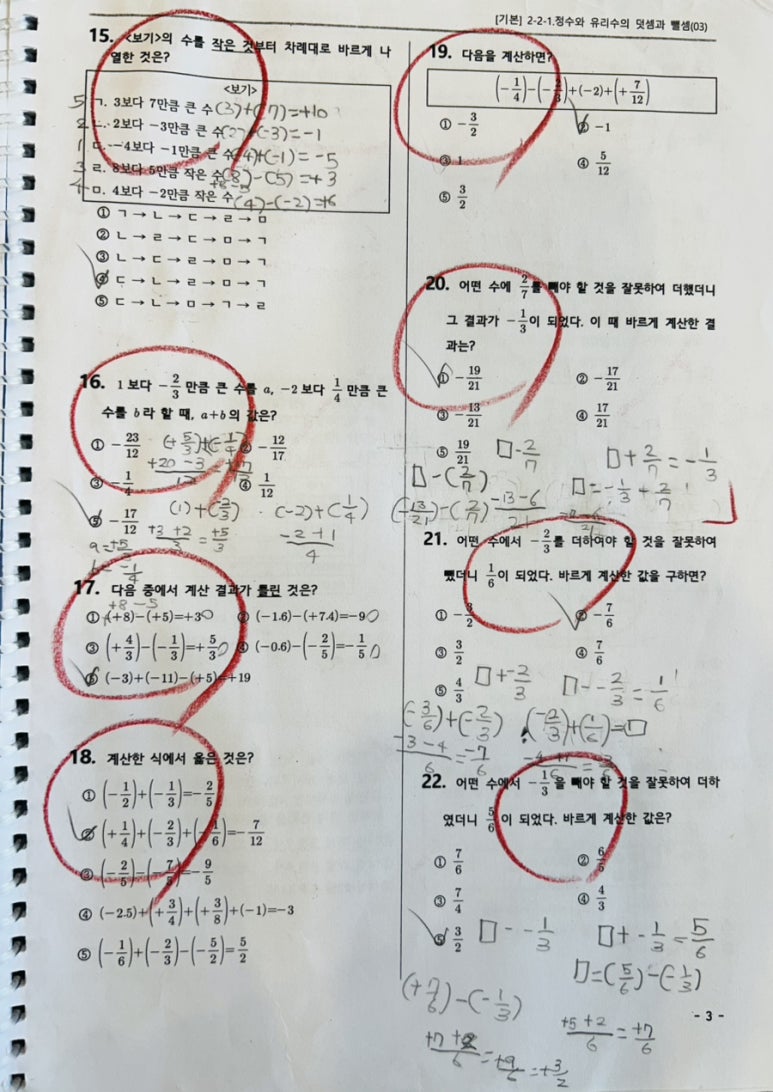 [기본] 2-2-1.정수와 유리수의 덧셈과 뺄셈(03)
15. <보기>의 수를 작은 것부터 차례대로 바르게 나
열한 것은?
<보기>
5 ㄱ. 3보다 7만큼 큰 수 (3)+(7)=+10
2 ㄴ. 2보다 -3만큼 큰 수 (2)+(-3)=-1
1 ㄷ. -4보다 -1만큼 큰 수 (-4)+(-1)=-5
3 ㄹ. 8보다 5만큼 작은 수 (8)-(5)=+3
+8-5
4 ㅁ. 4보다 -2만큼 작은 수 (4)-(-2)=+6
① ㄱ → ㄴ → ㄷ → ㄹ → ㅁ
② ㄴ → ㄹ → ㄷ → ㅁ → ㄱ
③ ㄴ → ㄷ → ㄹ → ㅁ → ㄱ
④ ㄷ → ㄴ → ㄹ → ㅁ → ㄱ
⑤ ㄷ → ㄴ → ㅁ → ㄱ → ㄹ
16. 1보다 -2/3 만큼 큰 수를 a, -2보다 1/4 만큼 큰
수를 b라 할 때, a+b의 값은?
① -23/12 ② -12/17
③ -1/4 ④ 1/12
⑤ -17/12
(+5/3)+(-1/4)
+20-3
(1)+(2/3) · (-2)+(1/4)
+3+2/3 = +5/3
-2+1/4
a=+5/3
b=-1/4
17. 다음 중에서 계산 결과가 틀린 것은?
+8-5
① (+8)-(+5)=+3 ② (-1.6)-(+7.4)=-9
③ (+4/3)-(-1/3)=+5/3 ④ (-0.6)-(-2/5)=-1/5
⑤ (-3)+(-11)-(+5)=+19
18. 계산한 식에서 옳은 것은?
① (-1/2)+(-1/3)=-2/5
② (+1/4)+(-2/3)+(-1/6)=-7/12
③ (-2/5)-(-7/5)=-9/5
④ (-2.5)+(+3/4)+(+3/8)+(-1)=-3
⑤ (-1/6)+(-2/3)-(-5/2)=5/2
19. 다음을 계산하면?
(-1/4)-(-2/3)+(-2)+(+7/12)
① -3/2 ② -1
③ 1 ④ 5/12
⑤ 3/2
20. 어떤 수에 2/7를 빼야 할 것을 잘못하여 더했더니
그 결과가 -1/3이 되었다. 이 때 바르게 계산한 결
과는?
① -19/21 ② -17/21
③ -13/21 ④ 17/21
⑤ 19/21
□-2/7
□+2/7=-1/3
□-(2/7)
□=-1/3+2/7
(-13/21)-(2/7) -13-6/21
21. 어떤 수에서 -2/3를 더하여야 할 것을 잘못하여
뺐더니 1/6이 되었다. 바르게 계산한 값을 구하면?
① -3/2 ② -7/6
③ 3/2 ④ 7/6
⑤ 4/3
□+-2/3
□--2/3=1/6
(-3/6)+(-2/3)
(-2/3)+(1/6)=□
-3-4/6=-7/6
-4+1/6=-3/6
22. 어떤 수에서 -1/3을 빼야 할 것을 잘못하여 더하
였더니 5/6이 되었다. 바르게 계산한 값은?
① 7/6 ② 6/5
③ 7/4 ④ 4/3
⑤ 3/2
□--1/3
□+-1/3=5/6
□=(5/6)-(-1/3)
(+7/6)-(-1/3)
+5+2/6=+7/6
+7+2/6=+9/6=+3/2
- 3 -